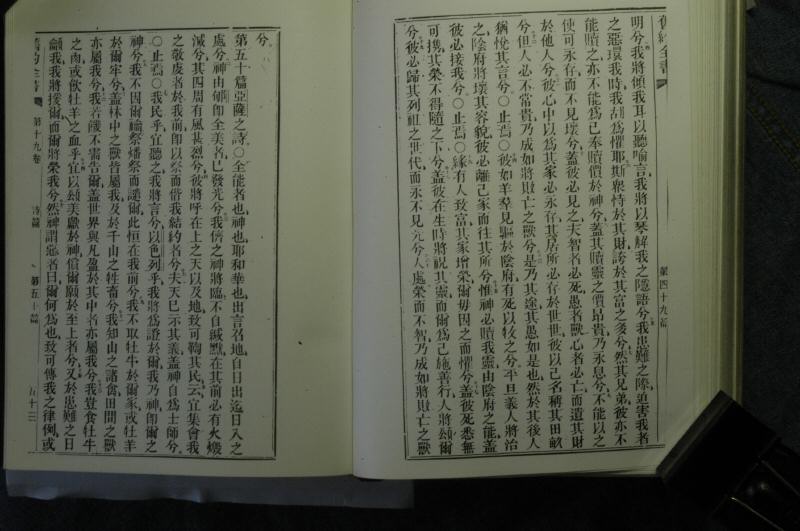 舊約全書
第四十九篇
明兮我將傾我耳以聽喻言我將以琴解我之隱語兮我患難之際迫害我者
之惡環我時我胡爲懼耶斯衆恃於其財誇於其富之多兮然其兄弟彼亦不
能贖之亦不能爲己奉贖價於神兮蓋其贖靈之價昂貴乃永息兮不能以之
使可永存而不見壞兮蓋彼必見之夫智者必死愚者獸心者必亡而遺其財
於他人兮彼心中以爲其家必永存其居所必存於世世彼以己名稱其田畝
兮但人必不常貴乃成如將斃亡之獸兮是乃其途其愚如是也然於其後人
猶悅其言兮○止焉○彼如羊羣見驅於陰府有死以牧之兮平旦義人將治
之陰府將壞其容貌彼必離己家而往其所兮惟神必贖我靈由陰府之能蓋
彼必接我兮○止焉○緣有人致富其家增榮爾毋因之而懼兮蓋彼死悉無
可攜其榮不得隨之下兮蓋彼在生時將祝其靈而爾爲己施善行人將頌爾
兮彼必歸其列祖之世代而永不見光兮人處榮而不智乃成如將斃亡之獸
兮
第五十篇亞薩之詩○全能者也神也耶和華也出言召地自日出迄日入之
處兮神由郇卽全美者已發光兮我儕之神將臨不自緘默在其前必有火燬
滅兮其四周有風甚烈兮彼將呼在上之天以及地致可鞫其民云宜集會我
之敬虔者於我前卽以祭而偕我結約者兮夫天已示其義蓋神自爲士師兮
○止焉○我民乎宜聽之我將言兮以色列乎我將爲證於爾我乃神卽爾之
神兮我不因爾禴祭燔祭而譴爾此恒在我前兮我不取牡牛於爾家或牡羊
於爾牢兮蓋林中之獸皆屬我及於千山之牲畜兮我知山之諸禽田間之獸
亦屬我兮我若饑不需告爾蓋世界與凡盈於其中者亦屬我兮我豈食牡牛
之肉或飲牡羊之血乎宜以頌美獻於神償爾願於至上者兮又於患難之日
籲我我將援爾而爾將榮我兮然神謂惡者曰爾何爲也致可傳我之律例或
舊約全書
第十九卷
詩篇
第五十篇
五十三